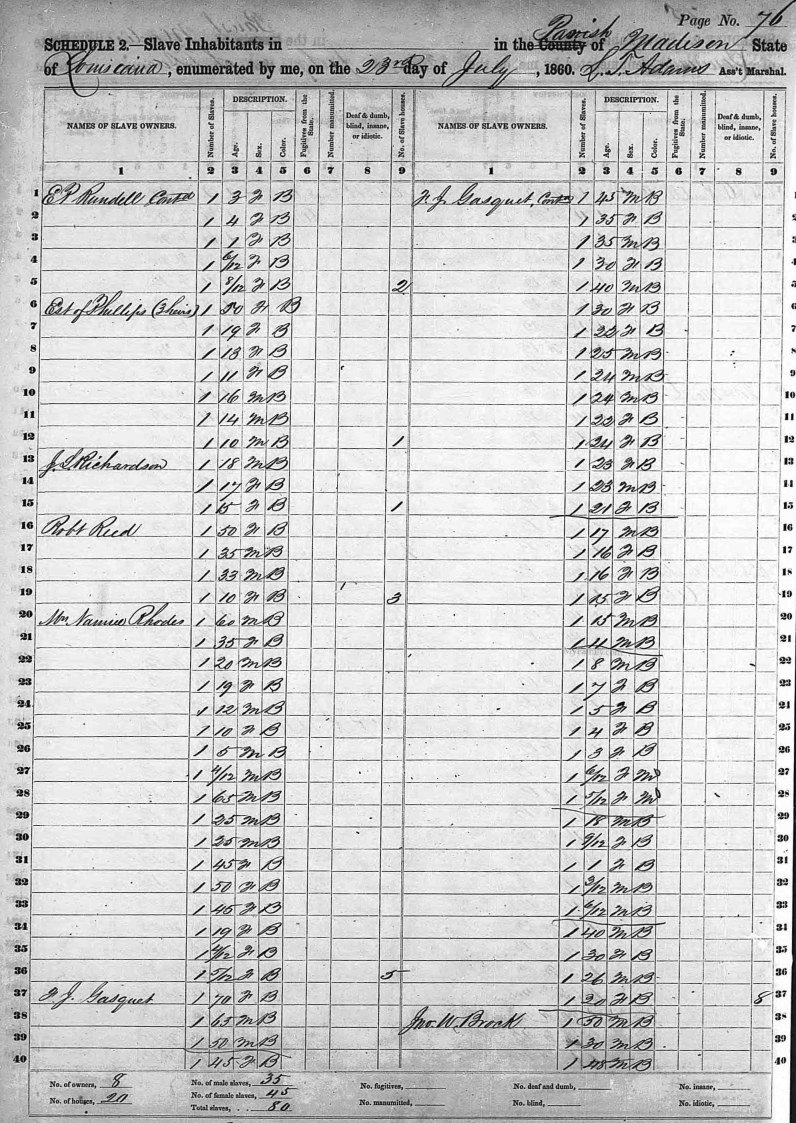 Page No. 76
SCHEDULE 2.—Slave Inhabitants in in the County Parish of Madison State
of Louisiana, enumerated by me, on the 23rd day of July, 1860. L. T. Adams Ass't Marshal.
NAMES OF SLAVE OWNERS. Number of Slaves. DESCRIPTION. Age. Sex. Color. Fugitives from the State. Number manumitted. Deaf & dumb, blind, insane, or idiotic. No. of Slave houses. NAMES OF SLAVE OWNERS. Number of Slaves. DESCRIPTION. Age. Sex. Color. Fugitives from the State. Number manumitted. Deaf & dumb, blind, insane, or idiotic. No. of Slave houses.
1 2 3 4 5 6 7 8 9 1 2 3 4 5 6 7 8 9
1 Rundell Contd 1 3 F B F. J. Gasquet, Contd 1 45 M B 1
2 1 4 F B 1 35 F B 2
3 1 1 F B 1 35 M B 3
4 1 6/12 F B 1 30 F B 4
5 1 8/12 F B 2 1 40 M B 5
6 Est of Phillips (3 heirs) 1 50 F B 1 30 F B 6
7 1 19 F B 1 22 F B 7
8 1 13 F B 1 25 M B 8
9 1 11 F B 1 24 M B 9
10 1 16 M B 1 24 M B 10
11 1 14 M B 1 22 F B 11
12 1 10 M B 1 1 24 F B 12
13 J. L. Richardson 1 18 M B 1 23 F B 13
14 1 17 F B 1 23 M B 14
15 1 15 F B 1 1 21 F B 15
16 Robt Reed 1 50 F B 1 17 M B 16
17 1 35 M B 1 16 F B 17
18 1 33 M B 1 16 F B 18
19 1 10 F B 3 1 15 F B 19
20 Rhodes 1 60 M B 1 15 M B 20
21 1 35 F B 1 M B 21
22 1 20 M B 1 8 M B 22
23 1 19 F B 1 7 F B 23
24 1 12 M B 1 5 F B 24
25 1 10 F B 1 4 F B 25
26 1 5 M B 1 3 F B 26
27 1 4/12 M B 1 6/12 F M 27
28 1 65 M B 1 5/12 F M 28
29 1 25 M B 1 18 M B 29
30 1 25 M B 1 9/12 F B 30
31 1 45 F B 1 1 F B 31
32 1 50 F B 1 3/12 M B 32
33 1 45 F B 1 6/12 M B 33
34 1 19 F B 1 40 M B 34
35 1 F B 1 30 F B 35
36 1 5/12 F B 5 1 26 M B 36
37 F. J. Gasquet 1 70 F B 1 20 F B 8 37
38 1 65 M B Jno. W. Brock 1 50 M B 38
39 1 50 M B 1 30 M B 39
40 1 45 F B 1 48 M B 40
No. of owners, 8 No. of male slaves, 35 No. fugitives, No. deaf and dumb, No. insane,
No. of houses, 20 No. of female slaves, 45 No. manumitted, No. blind, No. idiotic,
Total slaves, 80